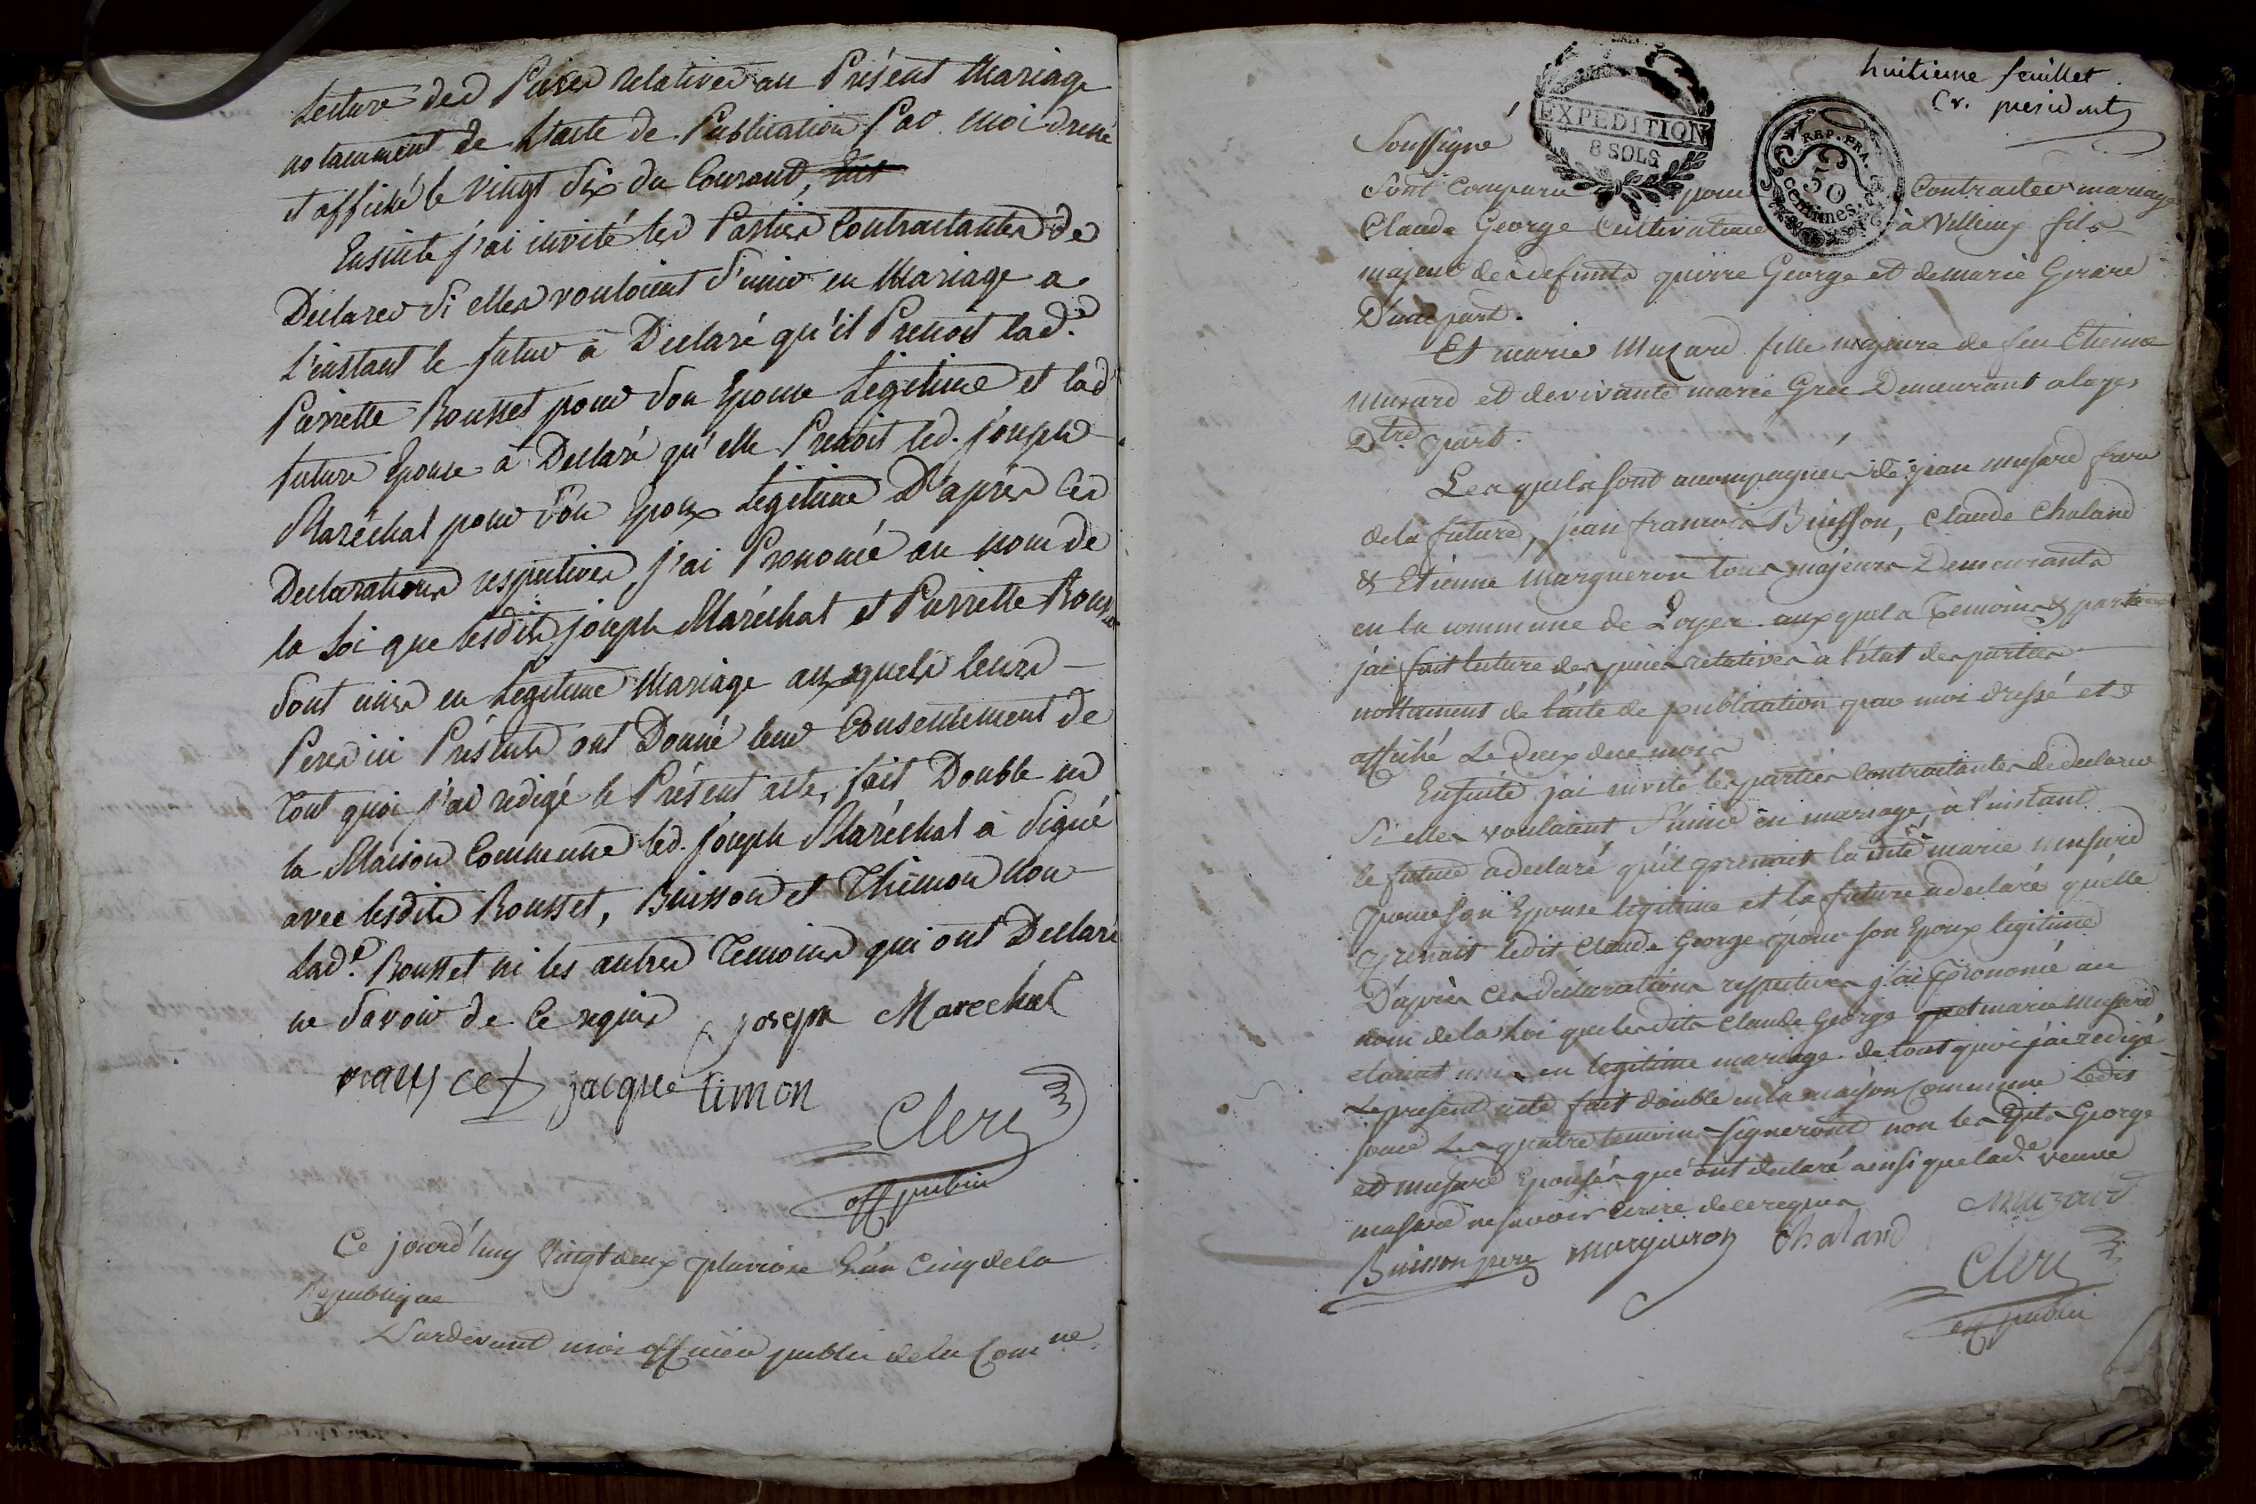 Lecture des Pieces relatives au Présent Mariage
notamment de L'acte de Publication Par moi dressé
et affiché le vingt Six du Courant,
Ensuite j'ai invité les Parties Contractantes de
Declarer Si elles vouloient S'unir en Mariage a
L'instant le futur à Declaré qu'il Prenoit lad.e
Pierrette Rousset pour Son Epouse Légitime et lad
future Epouse à Declaré qu'elle Prenoit led. joseph
Maréchal pour Son Epoux Légitime D'après ces
Declarations respectives j'ai Prononcé au nom de
la Loi que lesdits joseph Maréchal et Pierrette Rousset
Sont unis en Légitime Mariage auxquels leurs
Peres ici Présents ont Donné leur Consentement de
Tout quoi j'ai redigé le Présent acte, fait Double en
la Maison Commune led. joseph Maréchal à Signé
avec lesdits Rousset, Buisson et Thimon Non
Lad.e Rousset ni les autres Temoins qui ont Declaré
ne Savoir de Ce requis joseph Marechal
jacque timon
Clere
off public
Ce jourd'huy Vingt deux pluviose L'an Cinq de la
Republique
Pardevant moi officier public de la Com.ne
huitieme feuillet.
Cr. president
EXPEDITION
8 SOLS
REP. FRA.
50
Centimes.
Soussigné
Sont Comparu pour Contracter mariage
Claude George Cultivateur à Villeux fils
majeur des defunts pierre George et de marie Girare
D'une part.
Et marie Muzard fille majeure de feu Etienne
Musard et de vivante marie Gree Demeurant a loyes
D'tre part.
Lesquels sont accompagnés de jean musard frere
de la future, jean francois Buisson, Claude Chaland
& Etienne Margueron tous majeurs Demeurants
en la commune de Loyes auxquels Temoins & parties
j'ai fait lecture des pieces relatives à l'état des parties
nottament de l'acte de publication par moi dressé et
affiché Le deux de ce mois
Ensuite j'ai invité les parties Contractantes de declarer
Si elles voulaient S'unir en mariage, à l'instant
le futur a declaré qu'il prenait la dite marie musard
pour son Epouse legitime et la future a declaré qu'elle
prenait ledit Claude George pour son Epoux legitime
D'après ces declarations respectives j'ai prononcé au
nom de la Loi que lesdits Claude George et marie Musard
etaient unis en legitime mariage. de tout quoi j'ai redigé
Le present acte fait double en la maison Commune Ledit
jour Les quatre temoins signeront non les dits George
et musard Epousés qui ont declaré ainsi que lad.e veuve
musard ne savoir Ecrire de ce requis
Muzard
Buisson pere margueron Chaland
Clere
off public